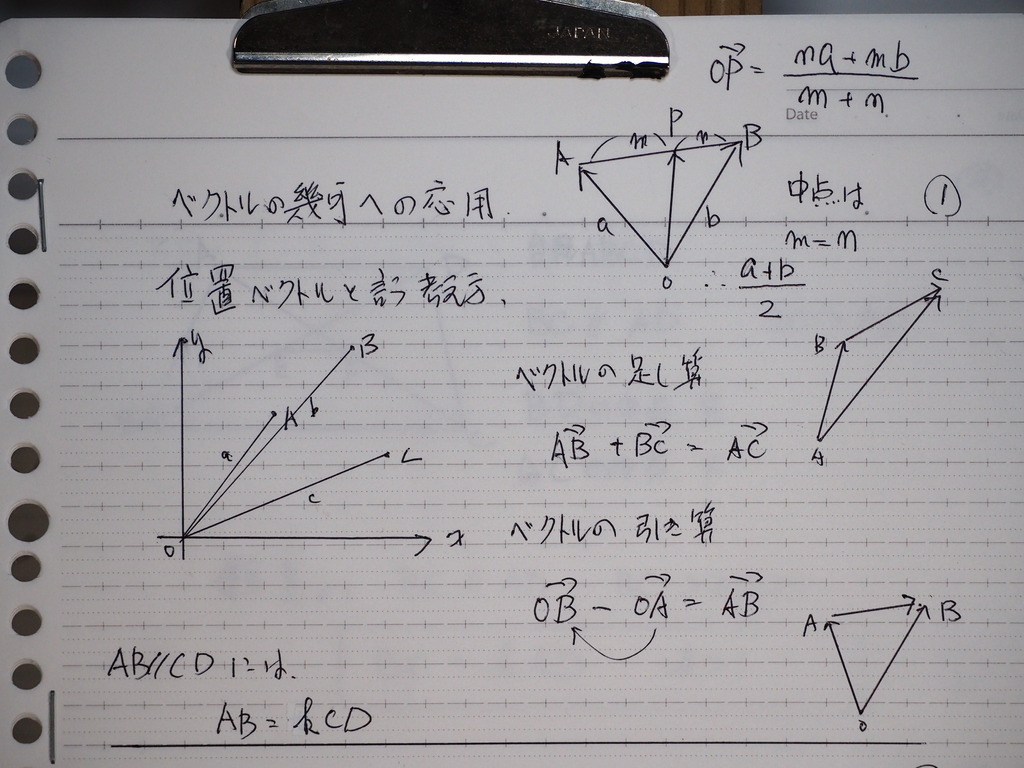 JAPAN
OP→ = na+mb / m+n
Date
A m P n B
a b
O
ベクトルの幾何への応用.
中点は ①
m=n
∴ a+b / 2
位置ベクトルと言う考え方.
y B
A b
a
C
c
O x
C
B
A
ベクトルの足し算
AB→ + BC→ = AC→
ベクトルの引き算
OB→ - OA→ = AB→
A B
O
AB//CDには.
AB=kCD